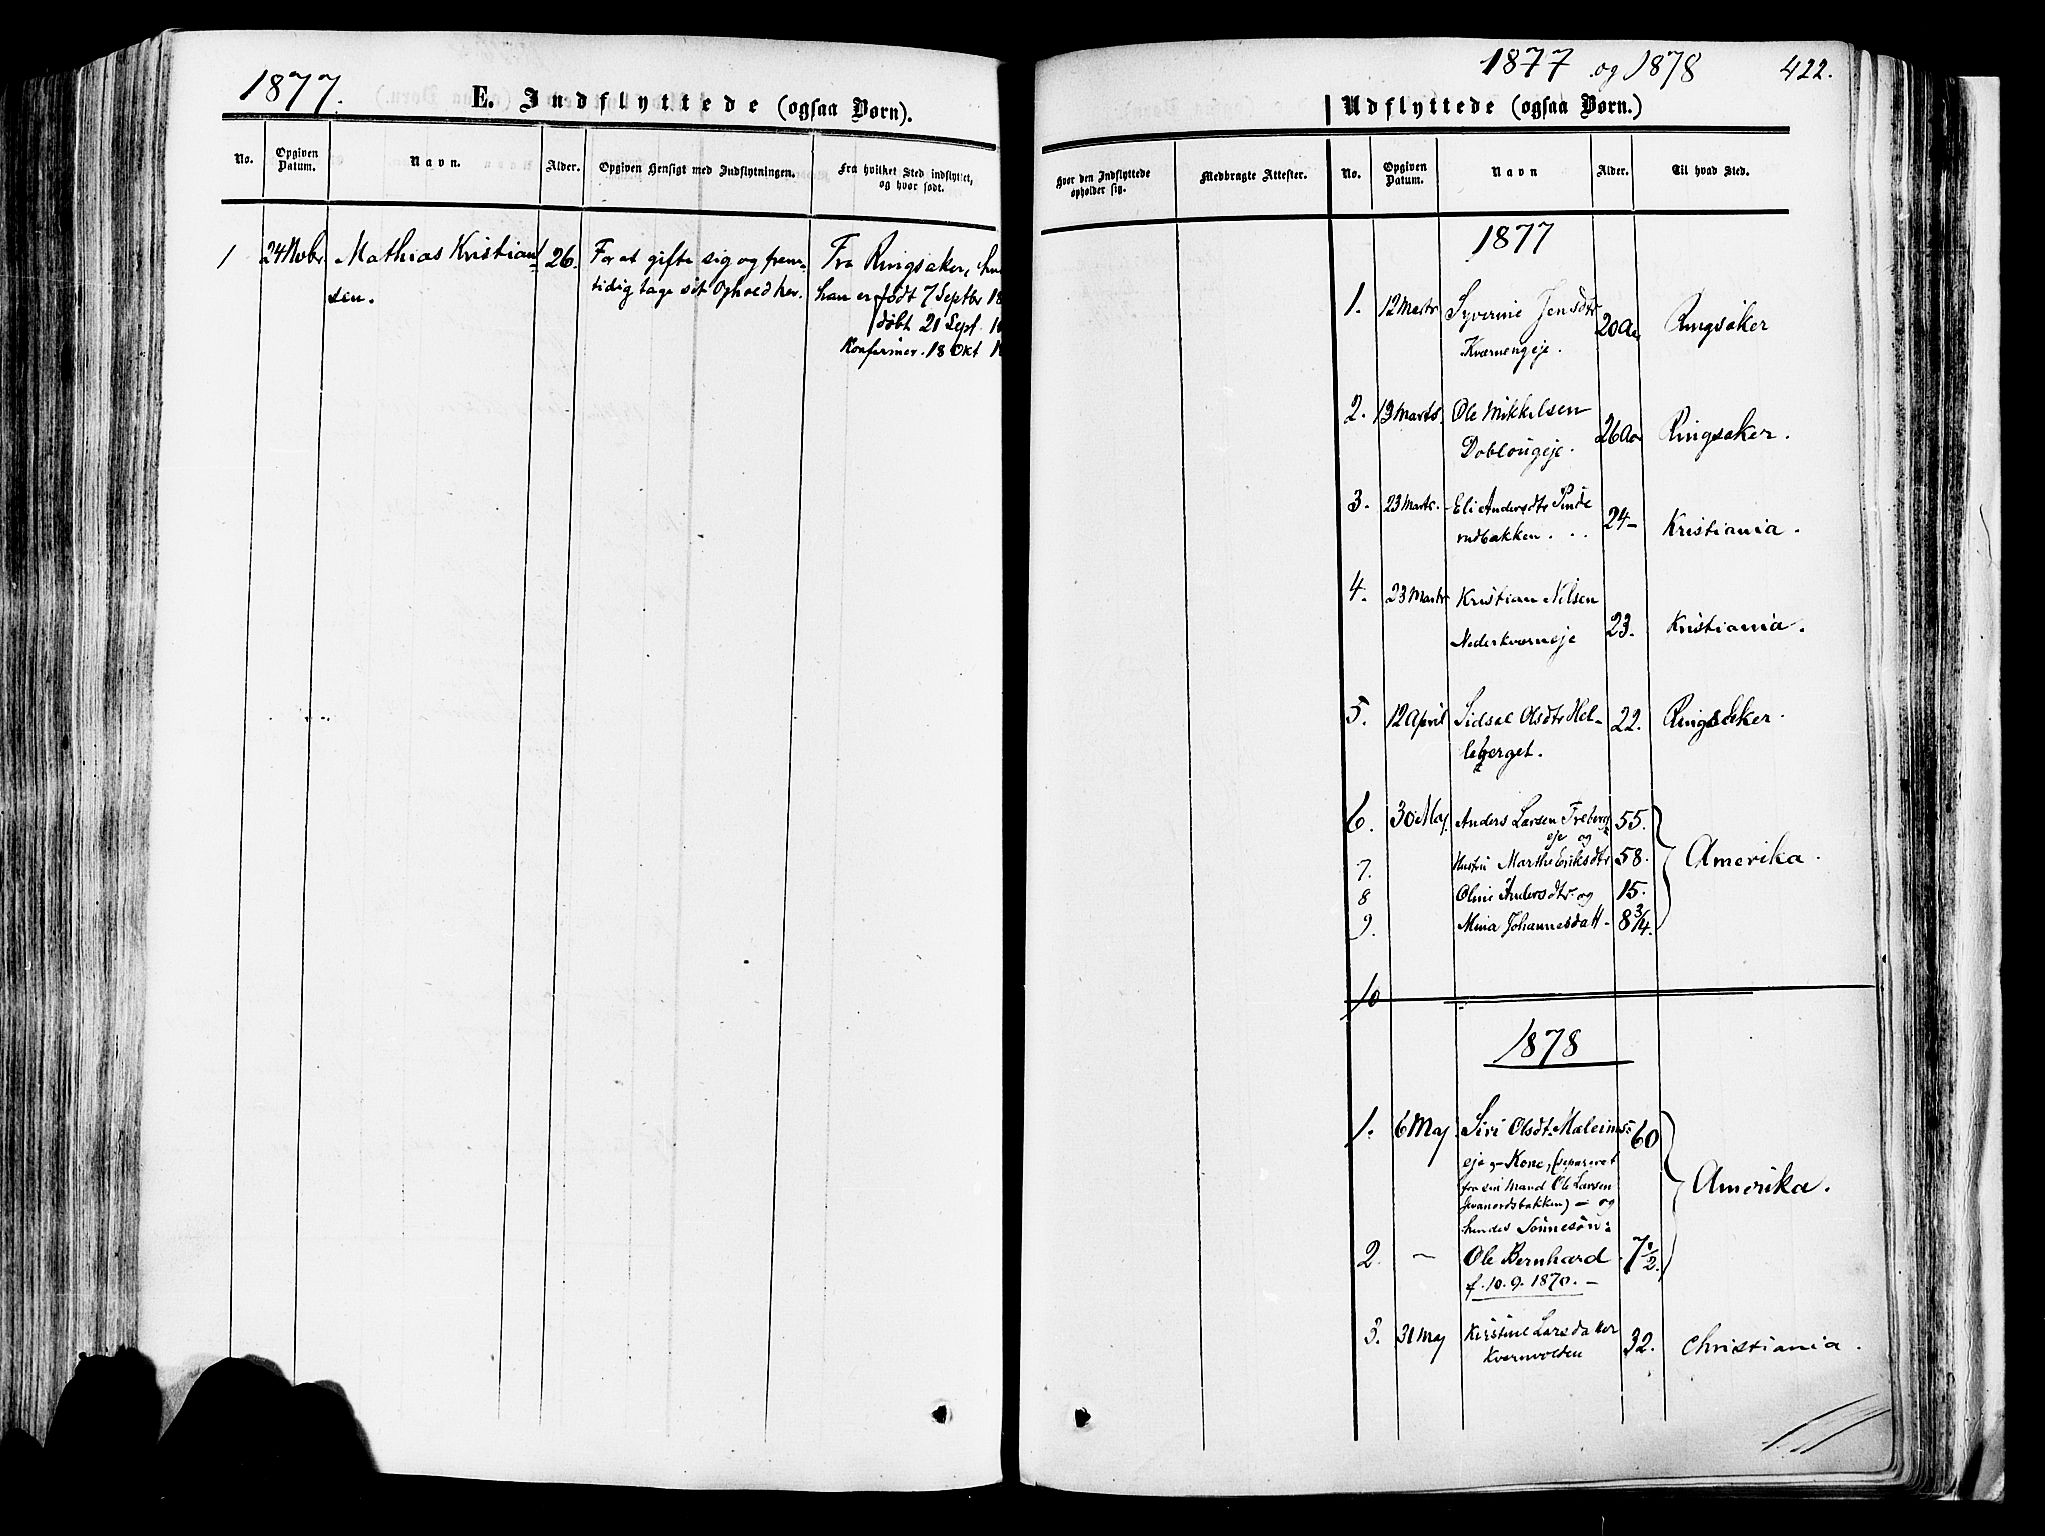 1877.
E. Indflyttede (ogsaa Børn).
No.
Opgiven Datum.
Navn.
Alder.
Opgiven Hensigt med Indflytningen.
Fra hvilket Sted indflyttet, og hvor født.
1 24 Novbr Mathias Kristian- 26. For at gifte sig og frem- Fra Ringsaker,
sen. tidig tage sit Ophold her. han er født 7 Septbr 18
døbt 21 Sept. 18
Konfirmer. 18 Okt 18
1877 og 1878 422.
Udflyttede (ogsaa Børn.)
Hvor den Indflyttede opholder sig.
Medbragte Attester.
No.
Opgiven Datum.
Navn
Alder.
Til hvad Sted.
1877
1. 12 Marts Syverine Jensdtr 20 Aar Ringsaker
Kværnengeje.
2. 13 Marts. Ole Mikkelsen 26 Aar Ringsaker.
Doblougeje.
3. 23 Marts. Eli Andersdtr Sinde 24- Kristiania.
rudbakken.
4. 23 Marts Kristian Nilsen 23. Kristiania.
Nederkværneje
5. 12 April Sidsel Olsdtr Hel- 22. Ringsaker.
leberget.
6. 30 Maj Anders Larsen Freberg 55. Amerika.
eje og
7. Hustru Marthe Eriksdtr 58.
8 Oline Andersdtr. og 15.
9. Mina Johannesdatt- 8 3/4.
10
1878
1. 6 Maj Siri Olsdtr Maleims- 60 Amerika.
eje g- Kone, (separeret
fra sin Mand Ole Larsen
Svanordsbakken) – og
hendes Sønnesøn:
2. – Ole Bernhard 7 1/2.
f. 10. 9. 1870. –
3. 31 Maj Kirstine Larsdatter 32. Christiania.
Kvernvolden